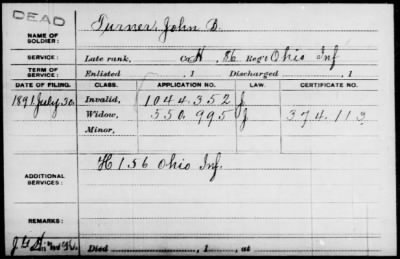 DEAD
NAME OF SOLDIER: Turner, John B.
SERVICE: Late rank, Co. H, 86 Reg't Ohio Inf
TERM OF SERVICE: Enlisted , 1 Discharged , 1
DATE OF FILING. CLASS. APPLICATION NO. LAW. CERTIFICATE NO.
1891 July 30. Invalid, 1044.352 J
Widow, 550.995 J 374.113
Minor,
ADDITIONAL SERVICES: H 156 Ohio Inf.
REMARKS:
Died , 1 , at